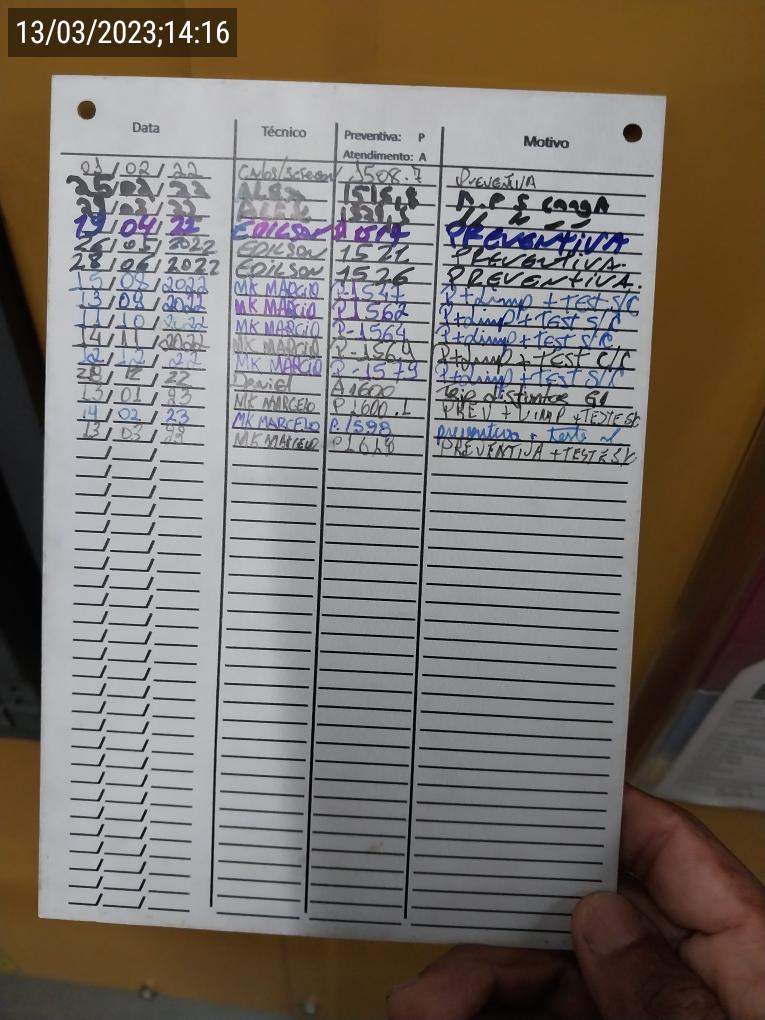 13/03/2023;14:16
Data Técnico Preventiva: P Motivo
Atendimento: A
01/02/22 Carlos/ 1508.7 PREVENTIVA
25/02/22 ALEX 1518,8 A.P.S CARGA
29/03/22 ALEX
19/04/22 EDILSON P 1517 PREVENTIVA
26/05/2022 EDILSON 1521 PREVENTIVA.
28/06/2022 EDILSON 1526 PREVENTIVA.
15/08/2022 MK MARCIO P-1547 P+Limp + TEST S/C
13/09/2022 MK MARCIO P-1562 P+Limp + TEST S/C
11/10/2022 MK MARCIO P-1564 P+Limp + TEST S/C
14/11/2022 MK MARCIO P-1569 P+Limp + TEST C/C
12/12/22 MK MARCIO P-1579 P+Limp + TEST S/C
28/12/22 Daniel A1600
13/01/23 MK MARCELO P1600.1 PREV + LIMP + TESTE SC
14/02/23 MK MARCELO P.1598 preventiva + teste
13/03/23 MK MARCELO P1618 PREVENTIVA + TESTE S/C